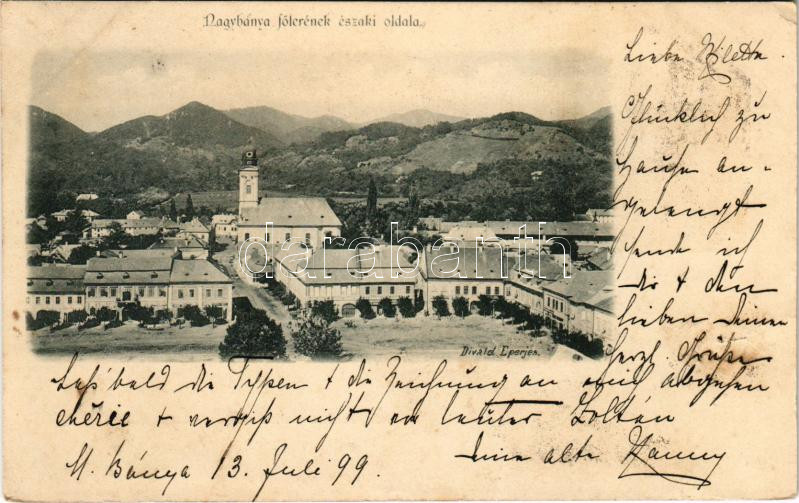 Nagybánya főterének északi oldala.
Liebe Vilette
Glücklich zu
Hause an-
gelangt
sende ich
dir & den
lieben Deinen
herzl. Grüße
darabanth
Divald Eperjes.
Laß' bald die Typpen & die Zeichnung an mich abgehen
chérie & vergiß nicht vor lauter Zoltán
deine alte Nanny
N. Bánya 13. Juli 99.